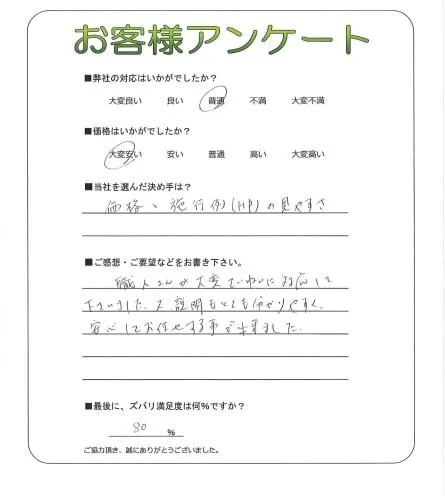 お客様アンケート
■弊社の対応はいかがでしたか?
大変良い 良い 普通 不満 大変不満
■価格はいかがでしたか?
大変安い 安い 普通 高い 大変高い
■当社を選んだ決め手は?
価格、施行例(HP)の見やすさ
■ご感想・ご要望などをお書き下さい。
職人さんが大変ていねいに対応して
下さいました。又説明もとても分かりやすく、
安心してお任せする事が出来ました。
■最後に、ズバリ満足度は何%ですか?
80 %
ご協力頂き、誠にありがとうございました。